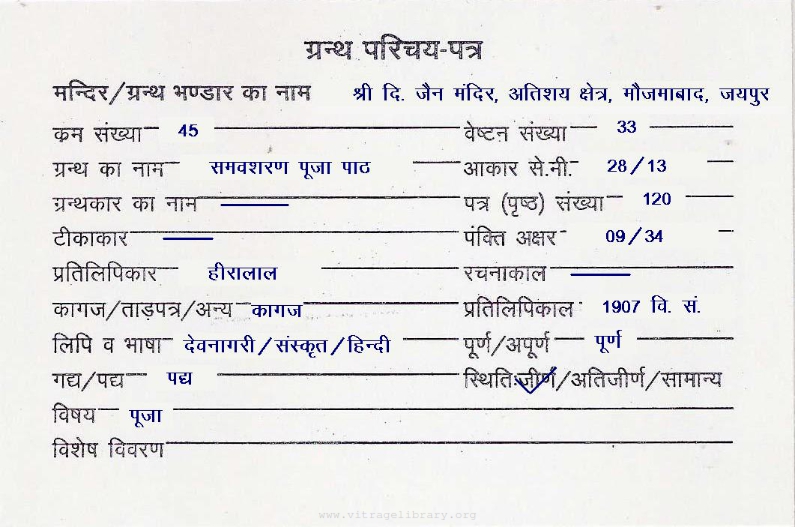 ग्रन्थ परिचय-पत्र
मन्दिर/ग्रन्थ भण्डार का नाम श्री दि. जैन मंदिर, अतिशय क्षेत्र, मौजमाबाद, जयपुर
कम संख्या 45 वेष्टन संख्या 33
ग्रन्थ का नाम समवशरण पूजा पाठ आकार से.मी. 28/13
ग्रन्थकार का नाम पत्र (पृष्ठ) संख्या 120
टीकाकार पंक्ति अक्षर 09/34
प्रतिलिपिकार हीरालाल रचनाकाल
कागज/ताड़पत्र/अन्य कागज प्रतिलिपिकाल 1907 वि. सं.
लिपि व भाषा देवनागरी/संस्कृत/हिन्दी पूर्ण/अपूर्ण पूर्ण
गद्य/पद्य पद्य स्थिति: जीर्ण/अतिजीर्ण/सामान्य
विषय पूजा
विशेष विवरण
www.vitragelibrary.org